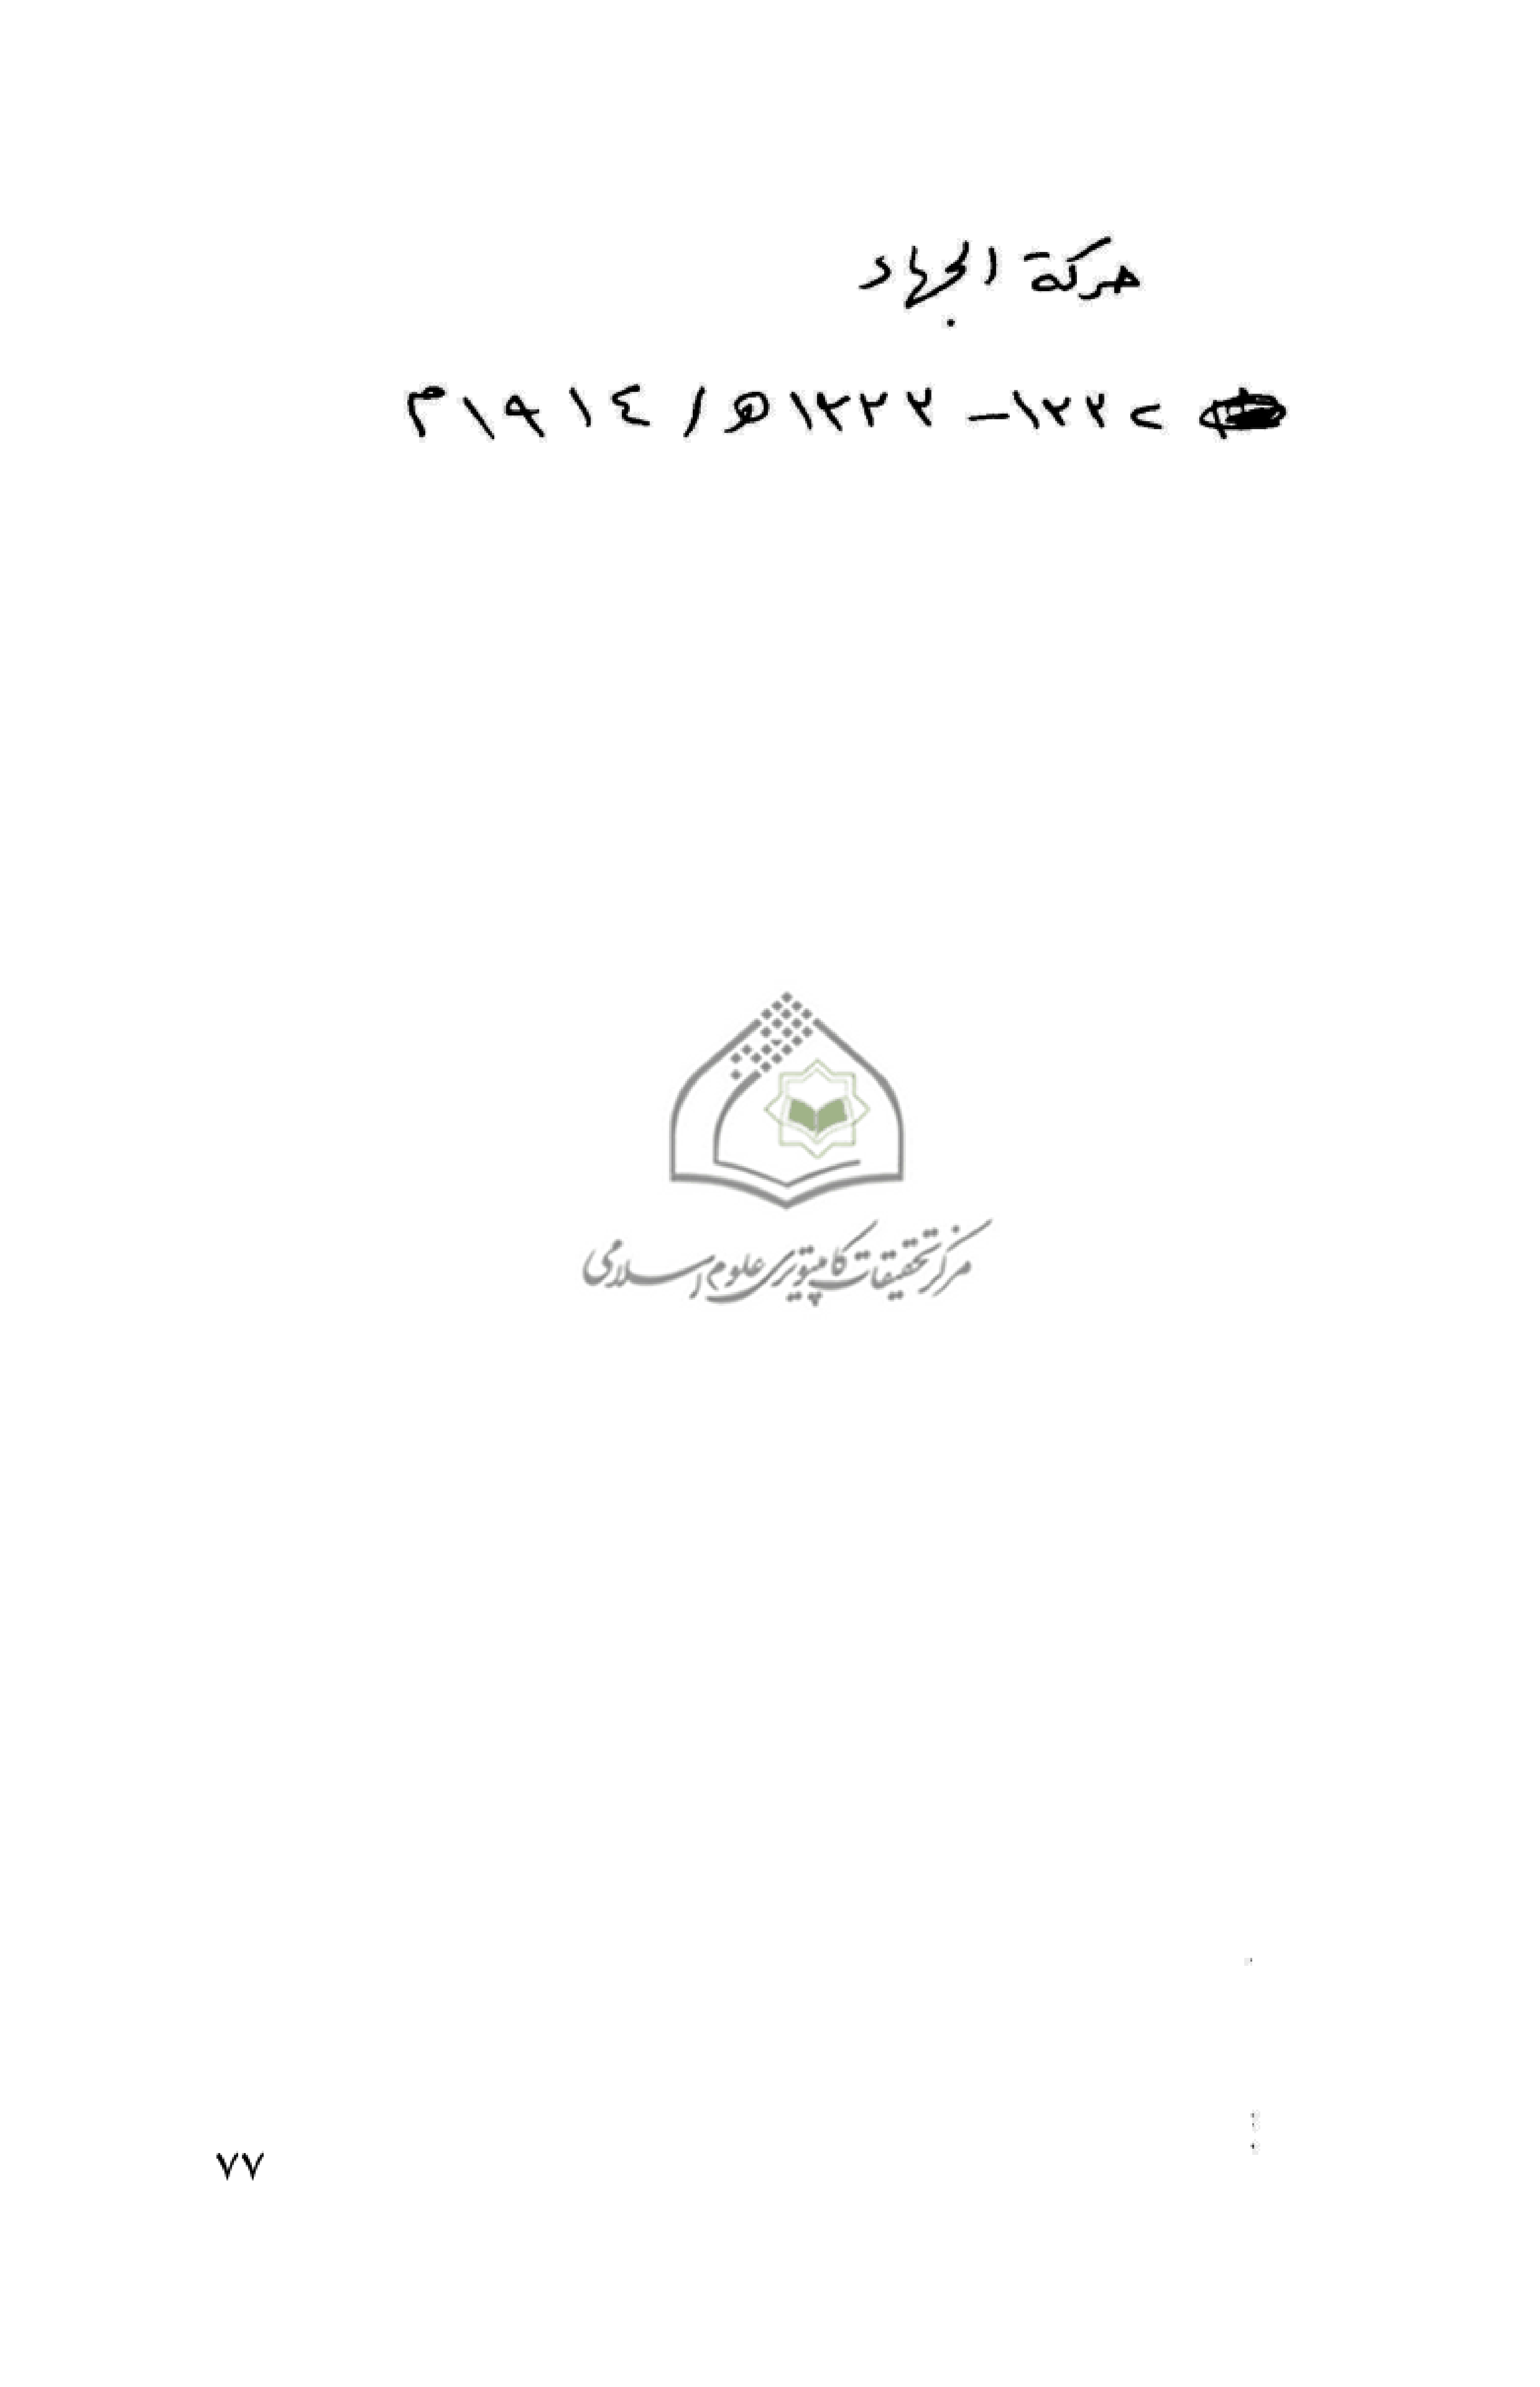 حركة الجهاد
١٣٣٢ – ١٣٣٣ه / ١٩١٤م
مركز تحقيقات كامپيوتری علوم اسلامی
٧٧